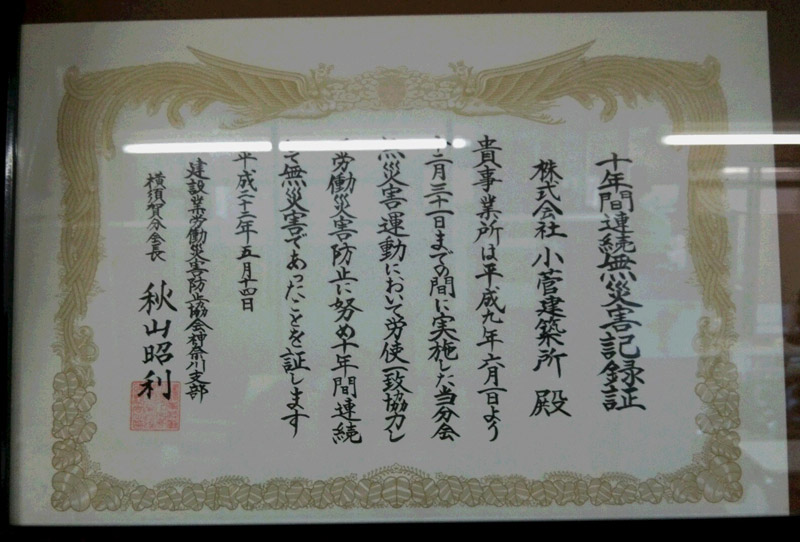 十年間連続無災害記録証
株式会社 小菅建築所 殿
貴事業所は平成九年六月一日より
二月三十一日までの間に実施した当分会
無災害運動において労使一致協力し
労働災害防止に努め十年間連続
て無災害であったことを証します
平成二十二年五月十四日
建設業労働災害防止協会神奈川支部
横須賀分会長 秋山昭利